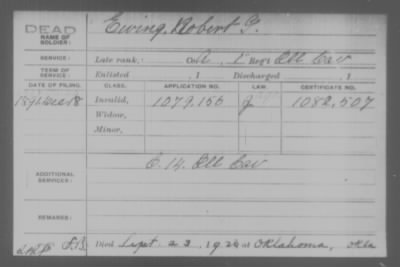 DEAD
NAME OF SOLDIER:
Ewing, Robert P.
SERVICE:
Late rank, Co. A, 1 Reg't Ill Cav
TERM OF SERVICE:
Enlisted , 1 Discharged , 1
DATE OF FILING. CLASS. APPLICATION NO. LAW. CERTIFICATE NO.
1891 Dec 18 Invalid, 1079,156 1082,507
Widow,
Minor,
ADDITIONAL SERVICES:
C. 14, Ill Cav
REMARKS:
Died Sept 23, 1926 at Oklahoma, Okla